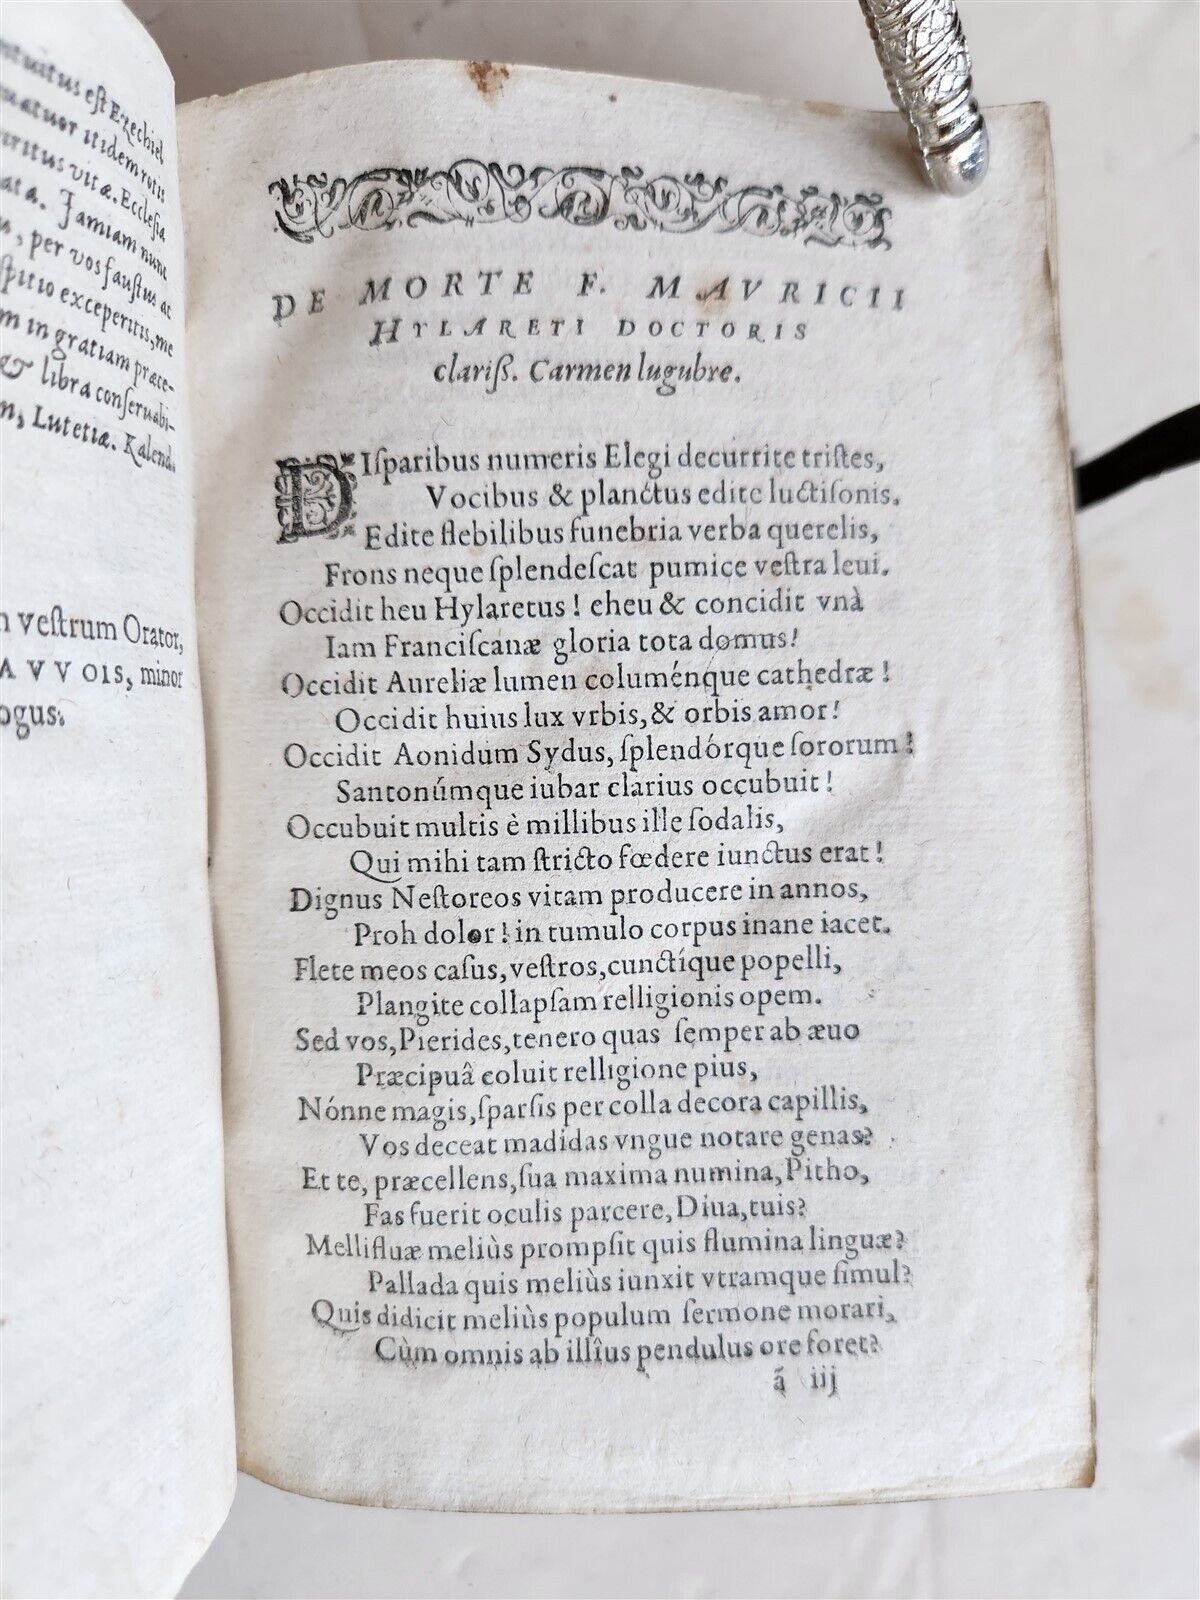 est Ezechiel
itidem rotis
vitæ. Ecclesia
Iamiam nunc
, per vos faustus ac
exceperitis, me
in gratiam præte-
& libra conseruabi-
, Lutetiæ. Kalend.
vestrum Orator,
AVVOIS, minor
DE MORTE F. MAVRICII
HYLARETI DOCTORIS
clariß. Carmen lugubre.
DIſparibus numeris Elegi decurrite triſtes,
Vocibus & planctus edite luctiſonis.
Edite flebilibus funebria verba querelis,
Frons neque ſplendeſcat pumice veſtra leui.
Occidit heu Hylaretus! eheu & concidit vnà
Iam Franciſcanæ gloria tota domus!
Occidit Aureliæ lumen columénque cathedræ!
Occidit huius lux vrbis, & orbis amor!
Occidit Aonidum Sydus, ſplendórque ſororum!
Santonúmque iubar clarius occubuit!
Occubuit multis è millibus ille ſodalis,
Qui mihi tam ſtricto fœdere iunctus erat!
Dignus Neſtoreos vitam producere in annos,
Proh dolor! in tumulo corpus inane iacet.
Flete meos caſus, veſtros, cunctíque popelli,
Plangite collapſam relligionis opem.
Sed vos, Pierides, tenero quas ſemper ab æuo
Præcipuâ coluit relligione pius,
Nónne magis, ſparſis per colla decora capillis,
Vos deceat madidas vngue notare genas?
Et te, præcellens, ſua maxima numina, Pitho,
Fas fuerit oculis parcere, Diua, tuis?
Mellifluæ meliùs prompſit quis flumina linguæ?
Pallada quis meliùs iunxit vtramque ſimul?
Quis didicit meliùs populum ſermone morari,
Cùm omnis ab illîus pendulus ore foret?
ã iij